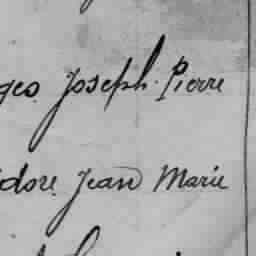 ges. Joseph. Pierre
dore. Jean Marie